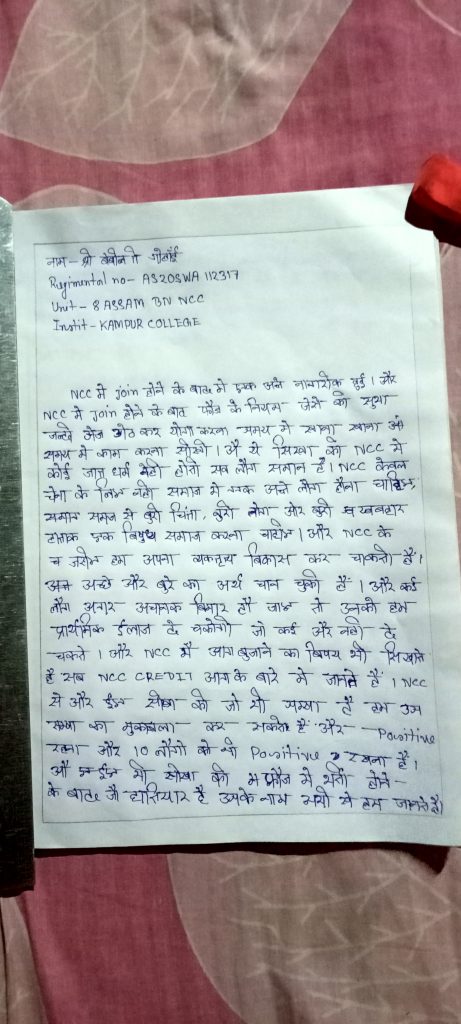 नाम - श्री
Regimental no- AS20SWA 112317
Unit - 8 ASSAM BN NCC
Instit - KAMPUR COLLEGE
NCC मे join होने के बाद मे एक अचे नागरीक हुई । और
NCC मे Join होने के बाद फौज के नियम जेसे की सुभा
जल्दि उठ कर योगा करना समय मे खाना खाना और
समय मे काम करना सीखो । औ ये सिखा की NCC मे
कोई जात धर्म नेही होती सब लोग समान है । NCC केवल
सेना के लिए नही समाज मे एक अच्छे लोग होना चाहिए,
समाज से बुरी चिंता, बुरी लोग और बुरी
एक समाज करना चाहीए । और NCC के
जरीए हम अपना विकास कर चाकते हैं ।
अच्छे और बुरे का अर्थ चान चुकी हैं । और कई
लोग अगर अचानक बिमार हो जाए तो उनको हम
प्राथमिक ईलाज दे चकेगी जो कई और नही दे
चकते । और NCC मै आग बुजाने का बिषय भी सिखाते
है सब NCC CREDIT के बारे मे जानते हैं । NCC
से और ईए सीखा की जो भी है हम उस
का मुकाबला कर सकते हैं और Positive
रहना और 10 लोगो को भी Positive रखना है ।
औ ईए भी सीखा की फौज मे भर्ती होने
के बाद जो हातियार है उसके नाम से हम जानते है।